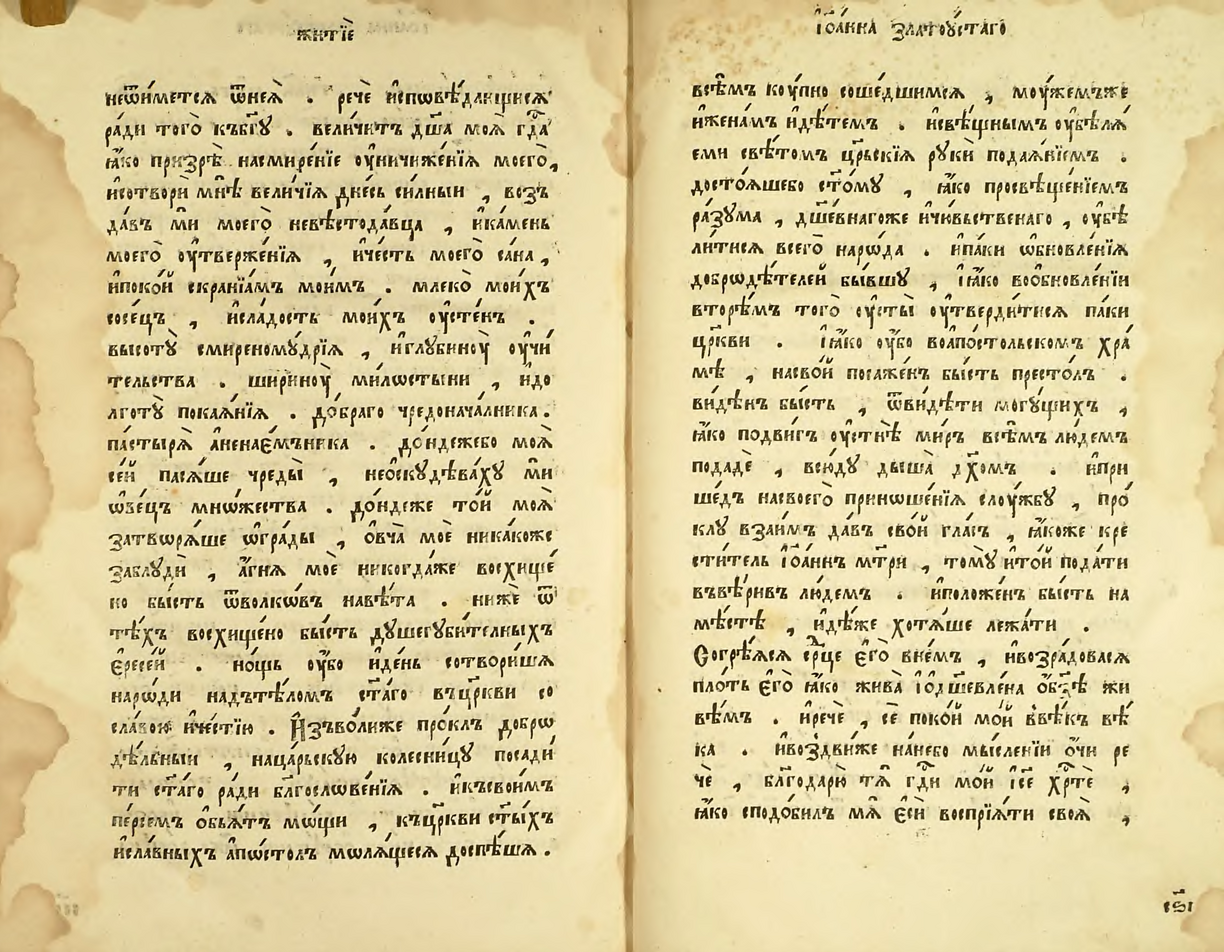 житїѐ
неѿи́метсѧ ѿнеѧ̀ . речѐ и҆сповѣ́дающисѧ
ра́ди того̀ къбг҃ꙋ . велича́итъ дш҃а моѧ̀ гд҃а
ꙗ҆́ко призрѣ̀ насмире́нїе ᲂу҆ничиже́нїѧ моего̀,
исотворѝ мнѣ̀ вели́чїѧ дне́сь си́лныи , возъ
да́въ мѝ моего̀ невѣстода́вца , ика́мень
моего̀ ᲂу҆тверже́нїѧ , иче́сть моего̀ са́на ,
ипоко́й скранїа́мъ мои́мъ . млеко̀ мои́хъ
сосе́цъ , исла́дость мои́хъ ᲂу҆сте́нъ .
высотꙋ̀ смиреномꙋ́дрїѧ , иглꙋбинᲂу̀ ᲂу҆чи́
тельства . ширинᲂу̀ ми́лѡстыни , идо
лготꙋ̀ покаѧ́нїѧ . до́браго чредонача́лника .
па́стырѧ а҆ненає́мъника . до́ндежебо моѧ̀
се́й пасѧ́ше чреды̀ , неоскꙋдѣва́хꙋ мѝ
ѡ҆ве́цъ мнѡ́жества . до́ндеже то́й моѧ̀
затворѧ́ше ѡ҆гра́ды , ѻ҆вча̀ моѐ никако́же
заблꙋдѝ , а҆́гнѧ моѐ никогда́же восхище́
но бы́сть ѿволкѡ́въ навѣ́та . нижѐ ѿ
тѣ́хъ восхище́но бы́сть дꙋшегꙋби́телныхъ
є҆ресе́й . но́щь ᲂу҆́бо иде́нь сотвори́шѧ
наро́ди надътѣ́ломъ ст҃а́го въцр҃кви со
сла́вою иче́стїю . И҆зъво́лиже про́клъ добрѡ
дѣ́льныи , нацарьскꙋю колесни́цꙋ посади́
ти ст҃а́го ра́ди блг҃ослове́нїѧ . икъсвои́мъ
пе́рсемъ ѻ҆бъѧ́тъ мѡ́щи , къцр҃кви ст҃ы́хъ
исла́вныхъ а҆пѡ́столъ молѧ́щесѧ доспѣ́шѧ .
і҆ѡа́нна златоᲂу́стаго
всѣ́мъ кᲂу́пно соше́дшимсѧ , мᲂу́жемъже
ижена́мъ идѣ́темъ . исвѣ́щнымъ ᲂу҆бѣлѧ́
еми свѣ́томъ цр҃ьскїѧ рꙋкѝ подаѧ́нїемъ .
досто́ѧшебо ст҃о́мꙋ , ꙗ҆́ко просвѣще́нїемъ
ра́зꙋма , дш҃е́внагоже ичю́вьственаго , ᲂу҆бѣ
ли́тисѧ всего̀ наро́да . ипа́ки ѡ҆бновле́нїѧ
добрѡдѣ́телей бы́вшꙋ , і҆ꙗ҆́ко воѻбновле́нїи
вторѣ́мъ того̀ ᲂу҆сты̀ ᲂу҆тверди́тисѧ па́ки
цр҃кви . і҆ꙗ҆́ко ᲂу҆́бо воапо́стольскомъ хра́
мѣ , насво́й посаже́нъ бы́сть престо́лъ .
ви́дѣнъ бы́сть , ѿви́дѣти могꙋ́щихъ ,
ꙗ҆́ко подви́гъ ᲂу҆стнѣ̀ ми́ръ всѣ́мъ лю́демъ
подадѐ , всю́дꙋ дыша̀ дх҃омъ . ипри
ше́дъ насвоего̀ приноше́нїѧ слᲂу́жбꙋ , про́
клꙋ взаи́мъ да́въ сво́й гла́съ , ꙗ҆́коже кре
сти́тель і҆ѡа́ннъ мт҃ри , томꙋ̀ ито́й пода́ти
въвѣ́ривъ лю́демъ . иположе́нъ бы́сть на
мѣ́стѣ , идѣ́же хотѧ́ше лежа́ти .
Согрѣ́ѧсѧ ср҃це є҆го̀ вне́мъ , ивозра́довасѧ
пло́ть є҆го̀ ꙗ҆́ко жива̀ і҆ѻдш҃евле́на ѻ҆бз҃ѣ жи
вѣ́мъ . иречѐ , сѐ поко́й мо́й ввѣ́къ вѣ́
ка . ивоздви́же на́небо мы́сленїи ѻ҆́чи ре
чѐ , благодарю̀ тѧ̀ гд҃и мо́й і҆с҃е хр҃тѐ ,
ꙗ҆́ко сподо́билъ мѧ̀ є҆сѝ воспрїѧ́ти своѧ̀ ,